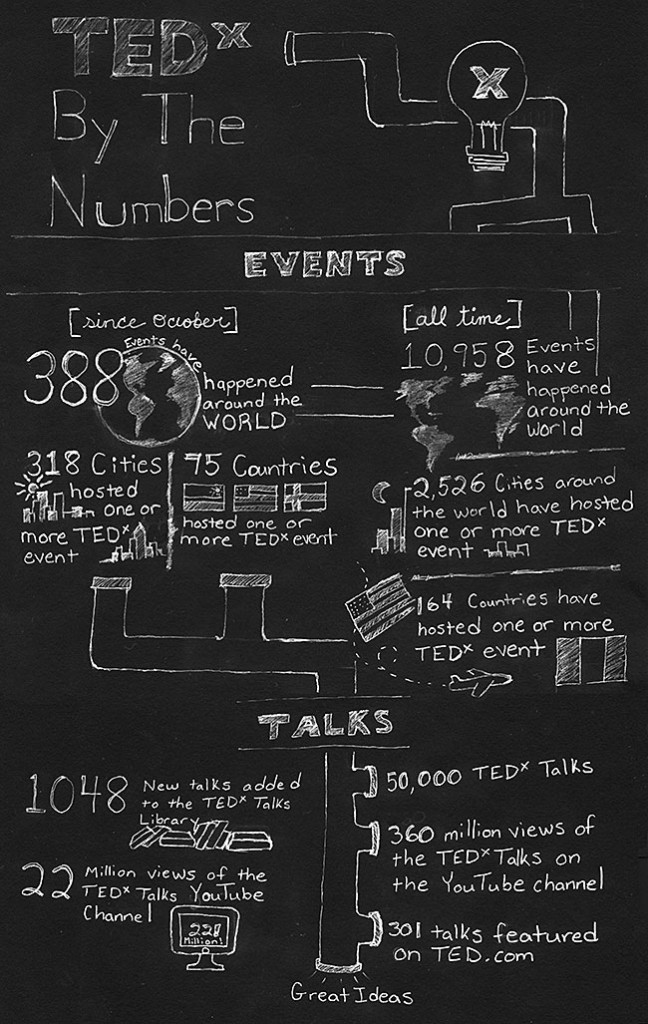 TEDx
By The
Numbers
X
EVENTS
[since October]
388
Events have
happened
around the
WORLD
318 Cities
hosted
one or
more TEDx
event
75 Countries
hosted one or
more TEDx event
[all time]
10,958 Events
have
happened
around the
world
2,526 Cities around
the world have hosted
one or more TEDx
event
164 Countries have
hosted one or more
TEDx event
TALKS
1048 New talks added
to the TEDx Talks
Library
22 Million views of the
TEDx Talks YouTube
Channel
22!
Million!
50,000 TEDx Talks
360 million views of
the TEDx Talks on
the YouTube channel
301 talks featured
on TED.com
Great Ideas